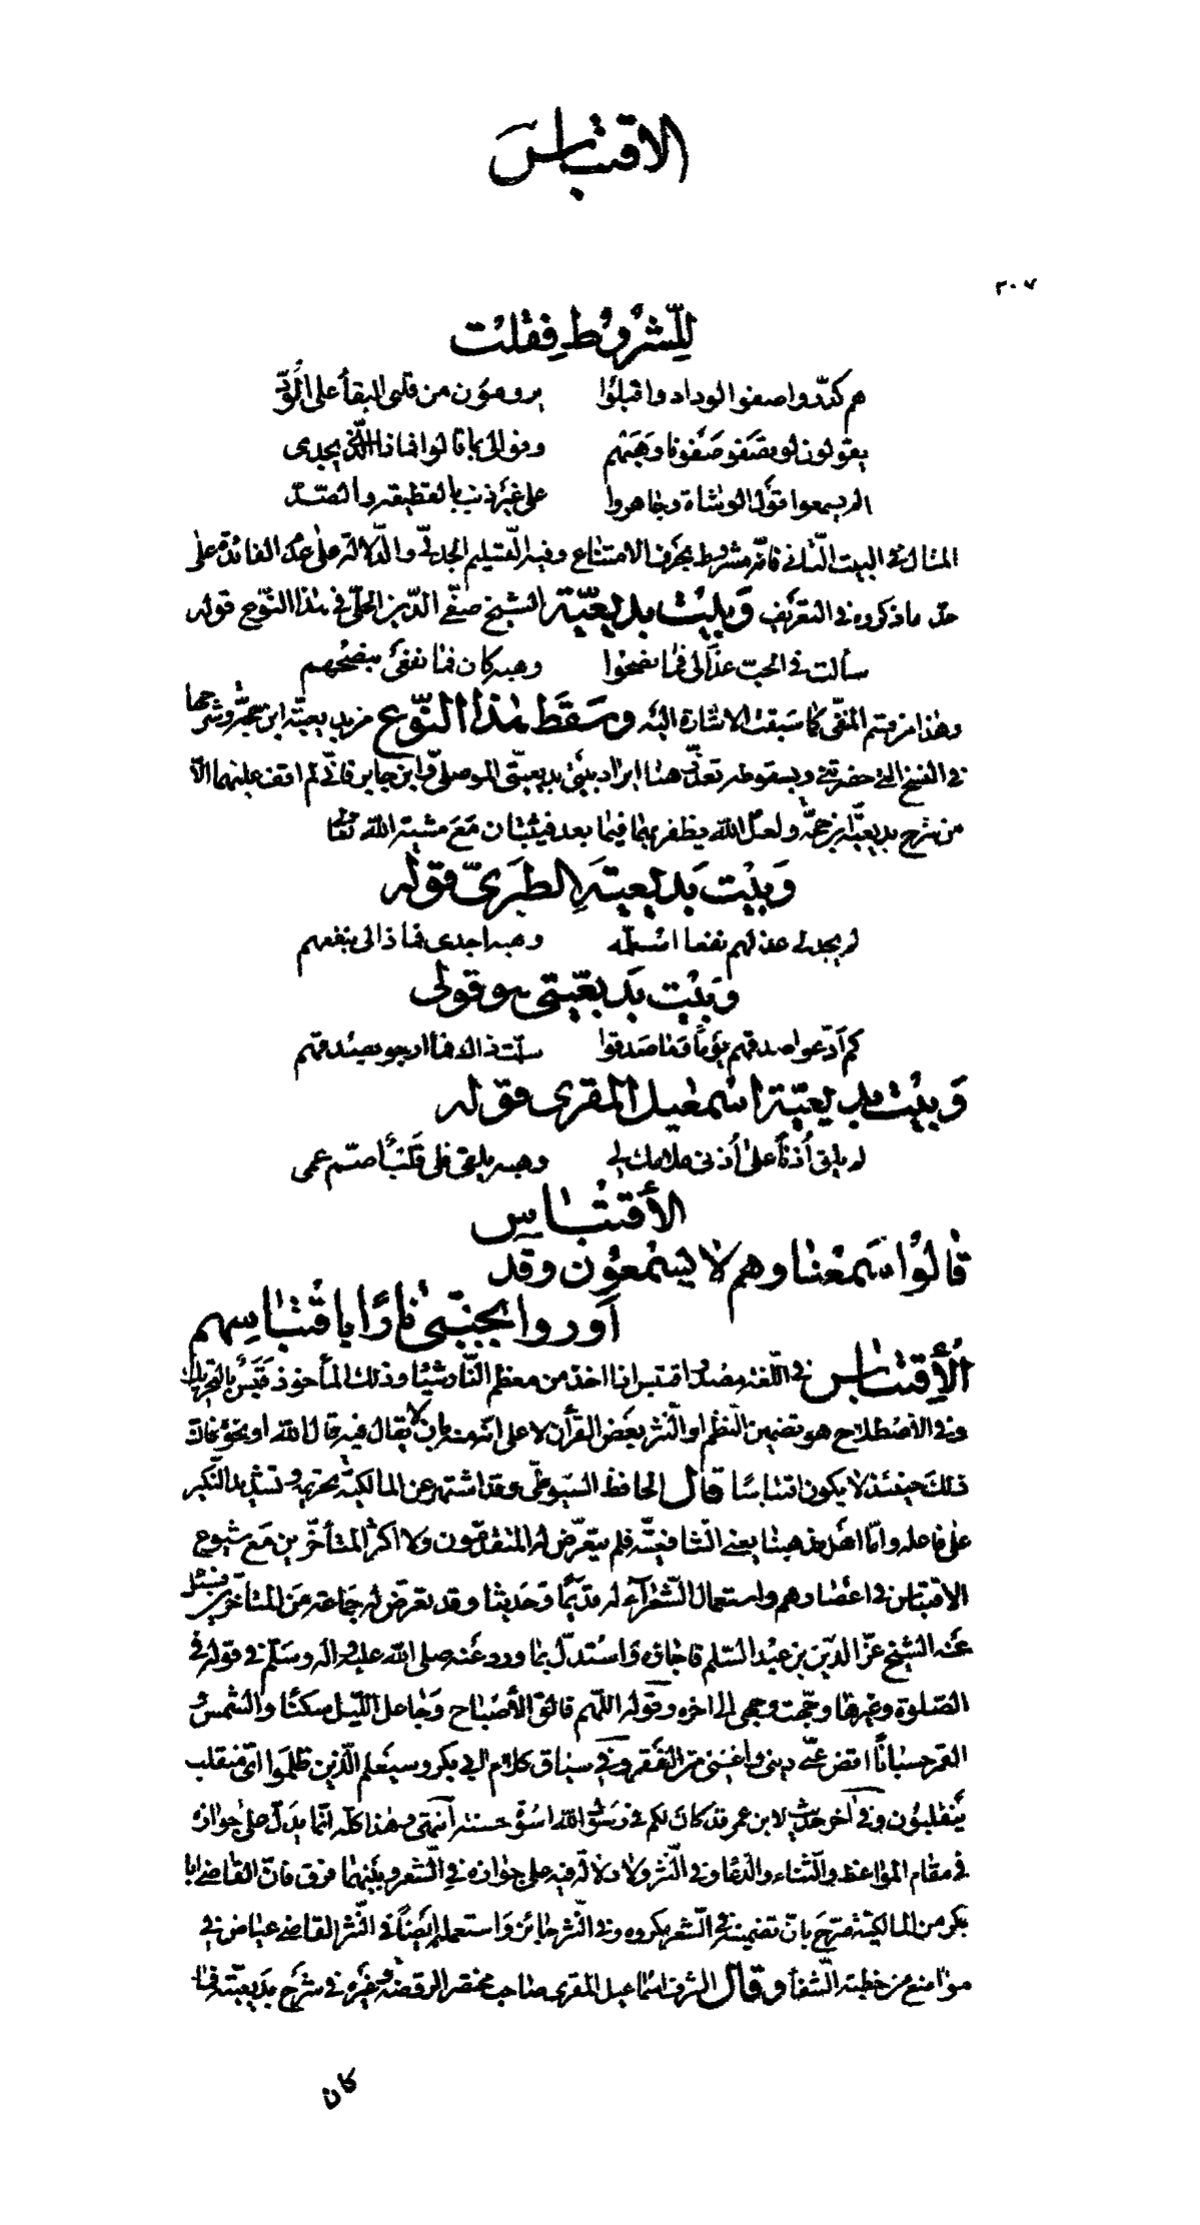 الاقتباس
٣٠٧
للشروط فقلت
هم كدّروا صفو الوداد واقبلوا يرومون من قلبي البقأ على الودّ
يقولون لو يصفو صفونا وهبهم وفوا لي بما قالوا فماذا الذي يجدي
الم يسمعوا قول الوشاة وجاهروا على غير ذنب بالقطيعة والصدّ
المثال في البيت الثاني فانّه مشروط بحرف الامتناع وفيه التسليم الجدلي والدّلالة على عدم الفائدة على
حدّ ما ذكروه في التعريف وبيت بديعيّة الشيخ صفي الدين الحلّي في هذا النّوع قوله
سألت في الحبّ عذّالي فما نصحوا وهبه كان فما نفعي بنصحهم
وهذا من قسم المنفي كما سبقت الاشارة اليه وسقط هذا النّوع من بديعيّة ابن حجّة وشرحها
في النسخ التي حضرتني وبسقوطه تعذّر هنا ايراد بيتي بديعيتي الموصلي وابن جابر فانّي لم اقف عليهما الّا
من شرح بديعيّة ابن حجّة ولعلّ الله يظفر بهما فيما بعد فيثبتان مع مشيّة الله تعالى
وبيت بديعيته الطبريّ قوله
لم يجد لي عذلهم نفعا اسلّمه وهبه اجدى فماذا لي بنفعهم
وبيت بديعيّتي هو قولي
كم ادّعوا صدقهم يوما وما صدقوا سلّمت ذاك فما ارجو بصدقهم
وبيت بديعيّة اسمعيل المقري قوله
لم يلق أذناً على أذني ملامك لي وهبه يلقى فلي قلبًا اصمّ عمي
الأقتباس
قالوا سمعنا وهم لا يسمعون وقد
أوروا بجنبي نارًا باقتباسهم
الأقتباس في اللغة مصدر اقتبس اذا اخذ من معظم النّار شيئا وذلك المأخوذ قبس بالتحريك
وفي الاصطلاح هو تضمين النظم او النثر بعض القرآن لا على انّه منه بان لا يقال فيه قال الله او نحوه فانّ
ذلك حينئذ لا يكون اقتباسًا قال الحافظ السيوطي وقد اشتهر عن المالكية تحريمه وتشديد النكير
على فاعله وامّا اهل مذهبنا يعني الشافعيّة فلم يتعرّض له المتقدمون ولا اكثر المتأخّرين مع شيوع
الاقتباس في اعصارهم واستعمال الشعرآء له قديمًا وحديثا وقد تعرّض له جماعة من المتأخرين فسئل
عنه الشيخ عزّ الدين بن عبد السلم فاجازه واستدلّ بما ورد عنه صلى الله عليه واله وسلّم في قوله في
الصلوة وغيرها وجّهت وجهي الى اخره وقوله اللهم فالق الأصباح وجاعل الليل سكنًا والشمس و
القمر حسبانًا اقض عنّي ديني واغنني من الفقر وفي سياق كلام ابي بكر وسيعلم الّذين ظلموا ايّ منقلب
ينقلبون وفي آخر حديث لابن عمر قد كان لكم في رسول الله اسوة حسنة انتهى وهذا كلّه انّما يدلّ على جوازه
في مقام المواعظ والثناء والدّعاء وفي النّثر ولا دلالة فيه على جوازه في الشعر وبينهما فرق فانّ القاضي ابا
بكر من المالكية صرّح بانّ تضمينه في الشعر مكروه وفي النثر جائز واستعمله ايضًا في النّثر القاضي عياض في
مواضع من خطبة الشفأ وقال الشرف اسماعيل المقري صاحب مختصر الروضة وغيره في شرح بديعيّته فما
كان